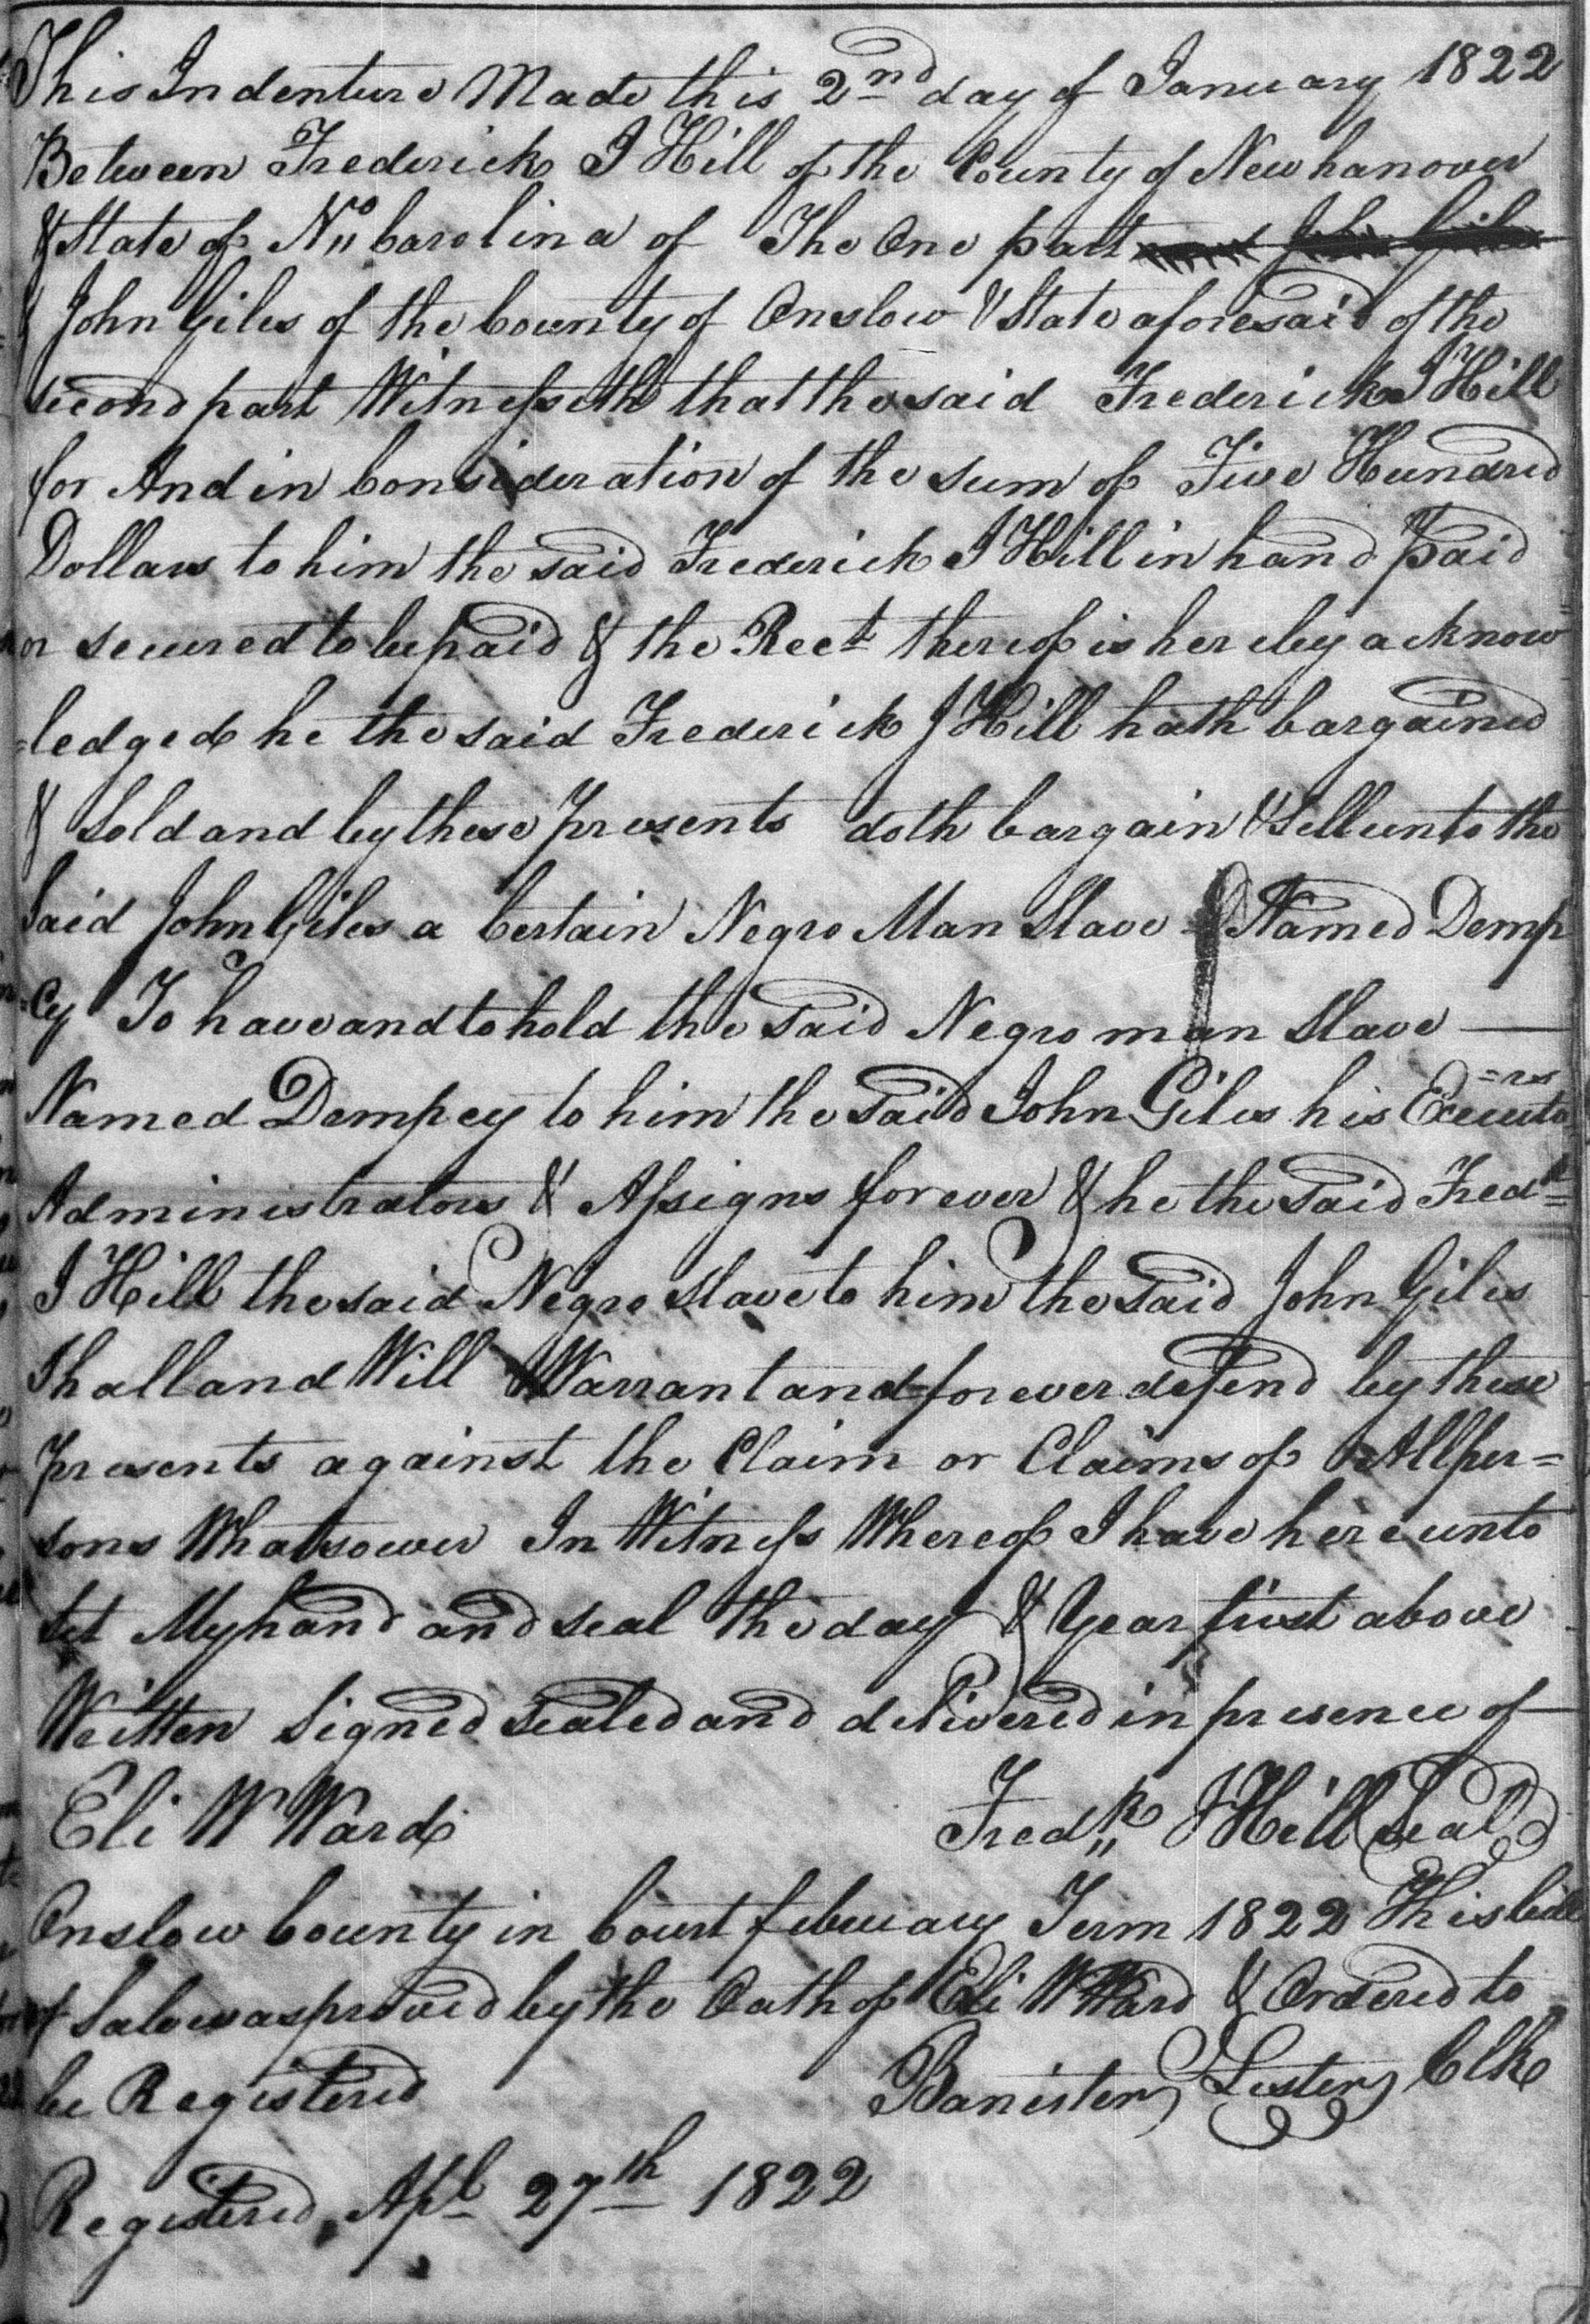 This Indenture Made this 2nd day of January 1822
Between Frederick J Hill of the County of Newhanover
& State of No Carolina of The One part
& John Giles of the County of Onslow & State aforesaid of the
second part Witnesseth that the said Frederick J Hill
for And in Consideration of the sum of Five Hundred
Dollars to him the said Frederick J Hill in hand paid
or secured to be paid & the Rect thereof is hereby acknow
=ledged he the said Frederick J Hill hath bargained
& Sold and by these presents doth bargain & Sell unto the
Said John Giles a Certain Negro Man Slave Named Demp
=cy To have and to hold the said Negro man Slave —
Named Dempcy to him the said John Giles his Executo
=rs
Administrators & Assigns forever & he the said Fredk
J Hill the said Negro Slave to him the said John Giles
Shall and Will Warrant and forever defend by these
presents against the Claim or Claims of All per=
sons Whatsoever In Witness Whereof I have hereunto
set My hand and seal the day & Year first above
Written Signed sealed and delivered in presence of
Eli W Ward Fredk J Hill Seal
Onslow County in Court february Term 1822 This bill
of Sale was proved by the Oath of Eli W Ward & Ordered to
be Registered Banister Lester Clk
Registered Apl 27th 1822